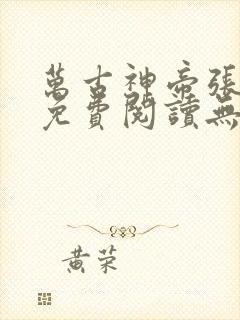 萬古神帝張
免費閱讀無
黃荣